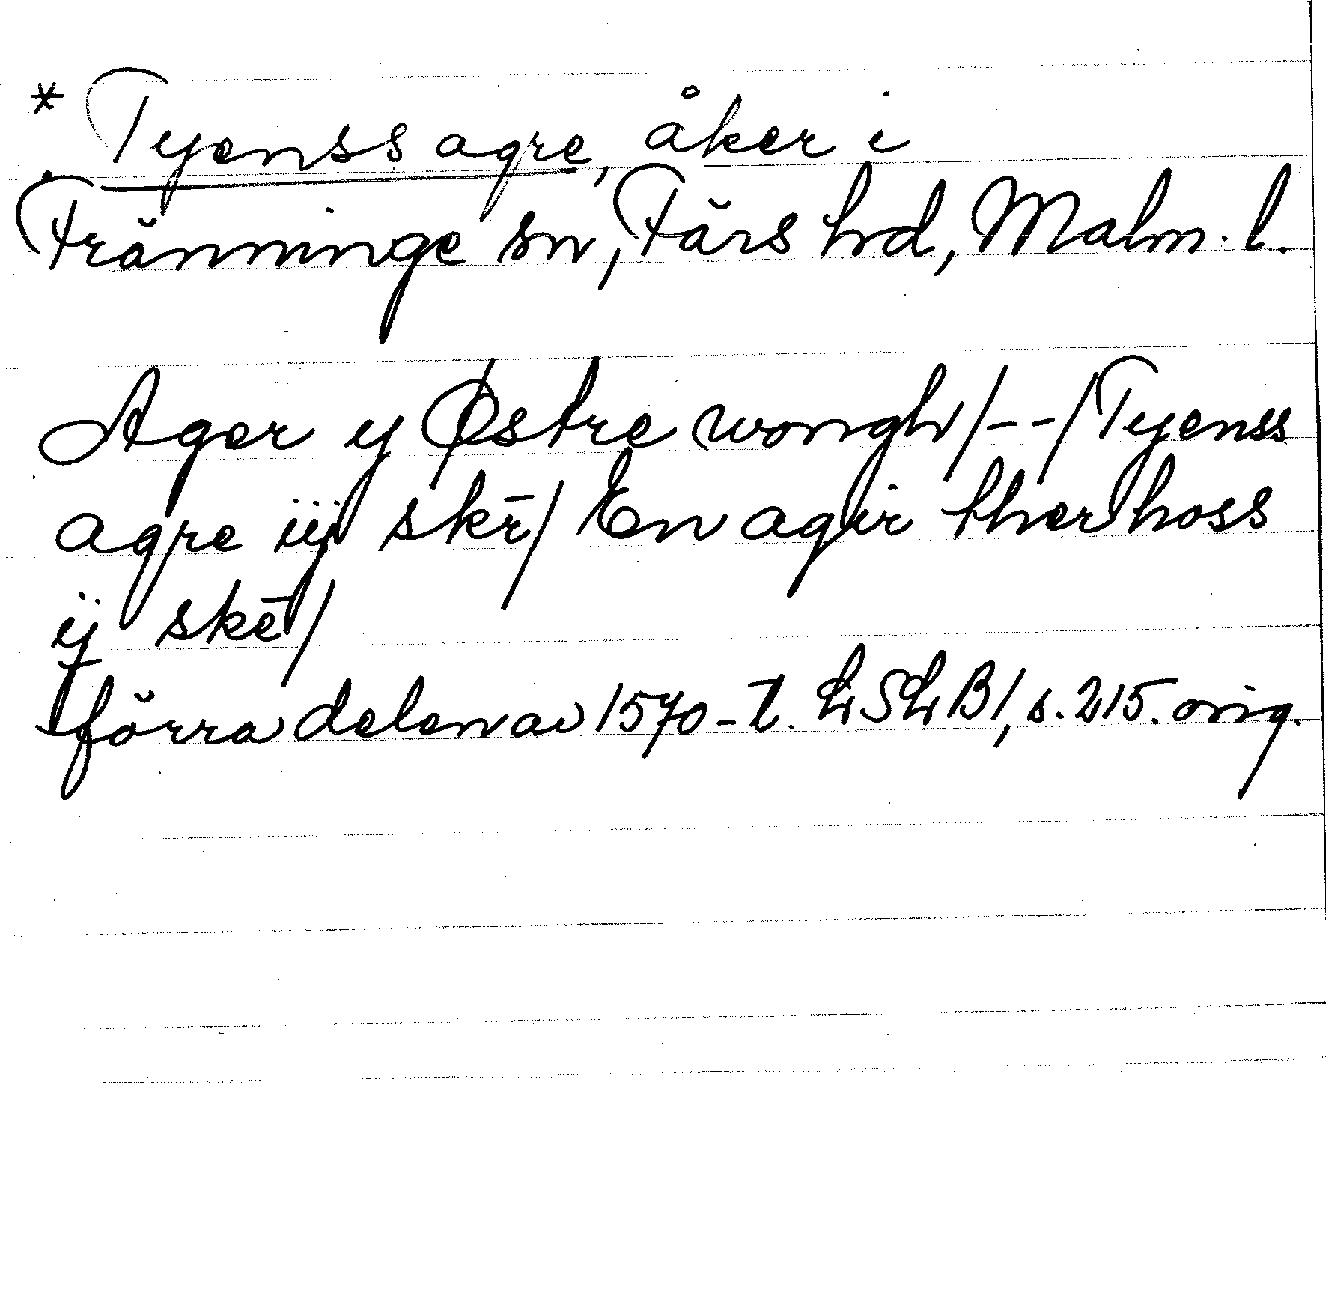 * Tyenss agre, åker i
Tränninge sn, Färs hd, Malm. l.
Ager y Østre wongh/--/Tyenss
agre iij skē/ En agir ther hoss
ij skē/
förra delen av 1570-t. LSLB1, s. 215. orig.